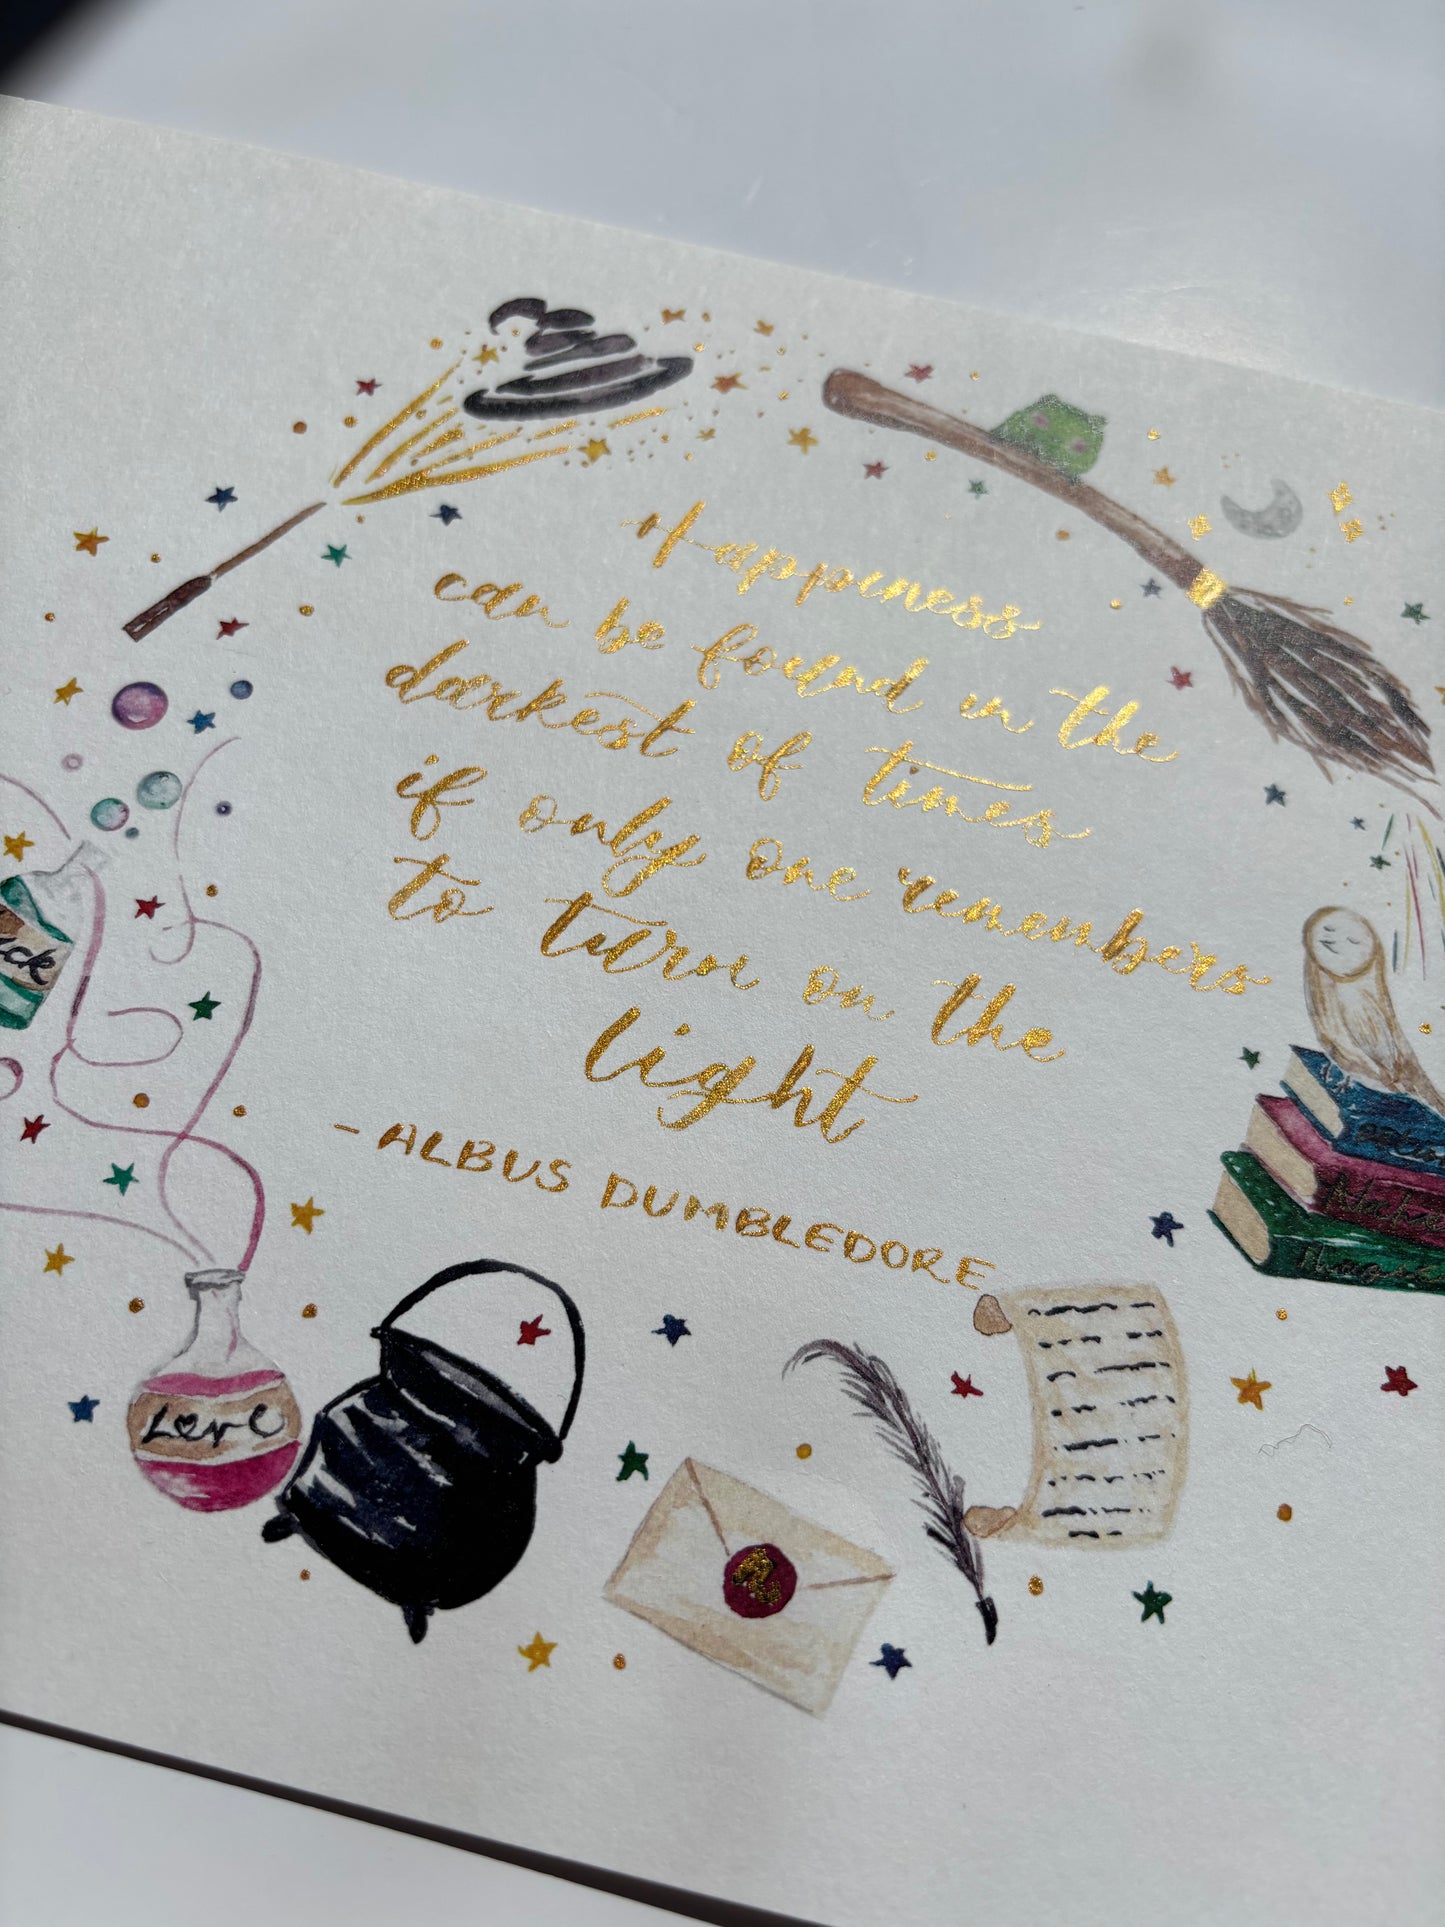 Happiness
can be found in the
darkest of times
if only one remembers
to turn on the
light
- ALBUS DUMBLEDORE
Love
Magic